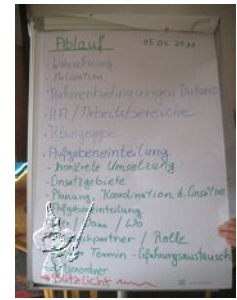 Ablauf 05.05.2011
- Wahrnehmung
- Motivation
- Rahmenbedingungen
- HA / Arbeitsbereiche
- Aufgabeneinteilung
- konkrete Umsetzung
- Einsatzgebiete
- Planung, Koordination d. Einsätze
- Aufgabeneinteilung
/ Dann / Wo
partner / Rolle
Termin - Erfahrungsaustausch
- Blitzlicht